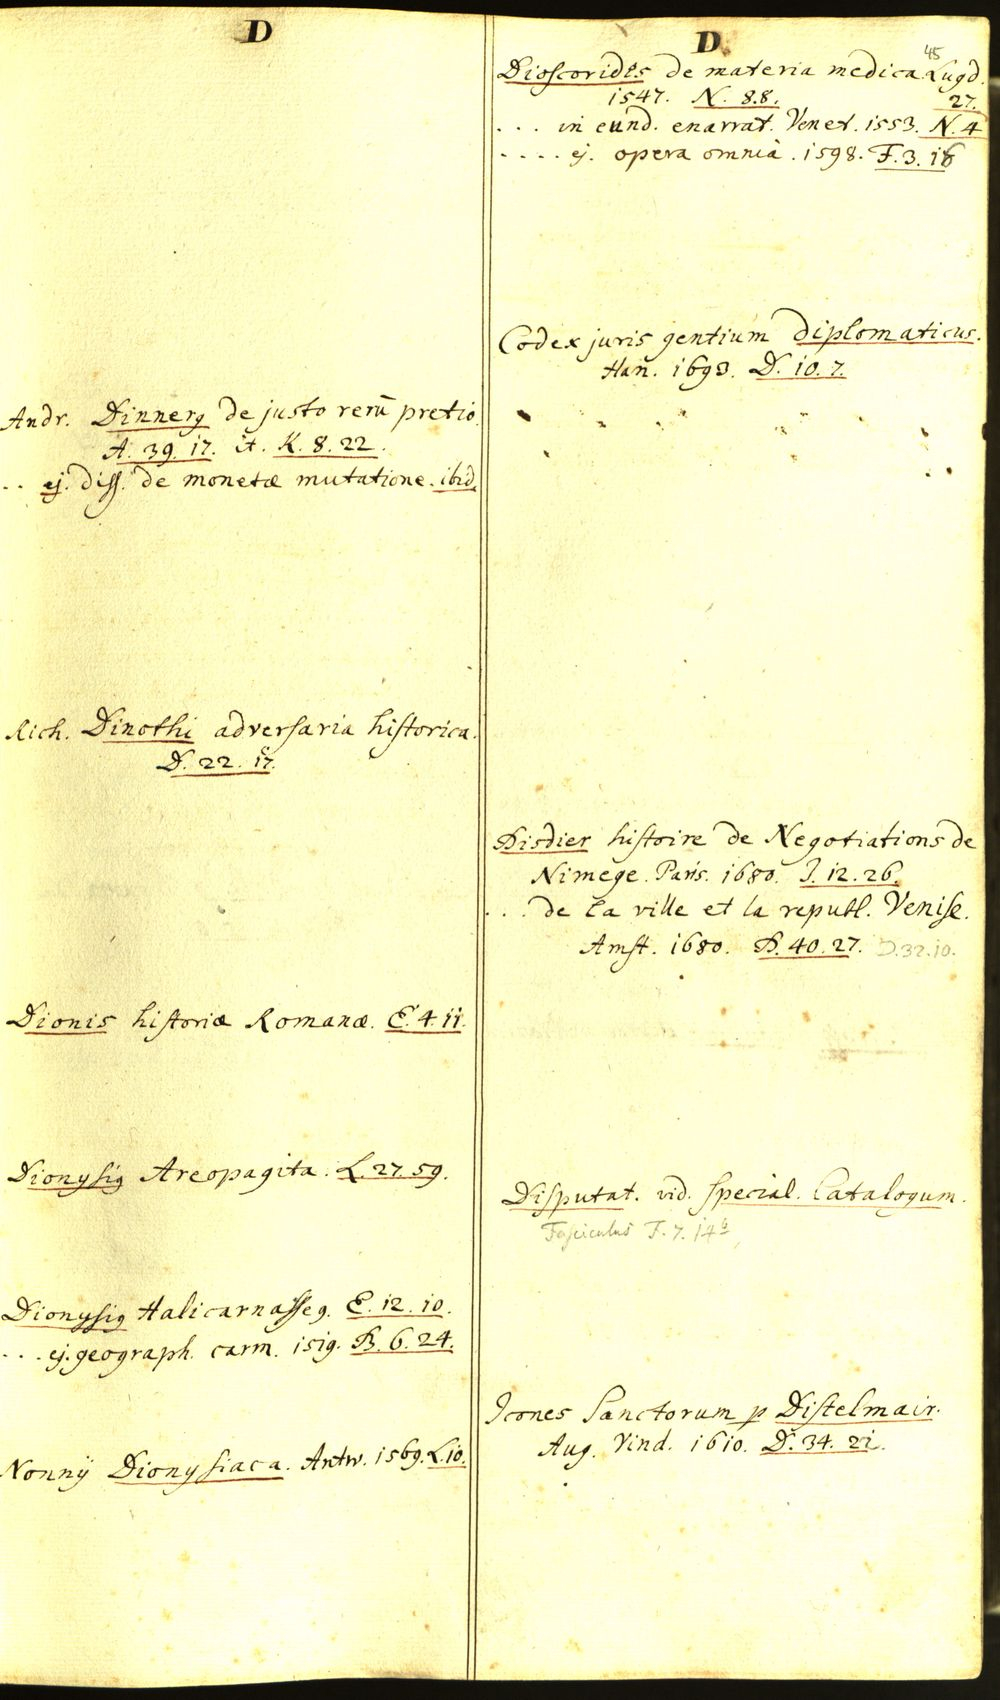 D
Andr. Dinnerg de justo rerū pretio.
A. 39. 17. it. K. 8. 22.
.. ej. diss. de monetæ mutatione. ibid.
Rich. Dinothi adversaria historica.
D. 22. 17.
Dionis historiæ Romanæ. E. 4. 11.
Dionysig Areopagita. L. 27. 59.
Dionysig Halicarnasseg. E. 12. 10.
... ej. geograph. carm. 1519. B. 6. 24.
Nonnÿ Dionysiaca. Antw. 1569. L. 10.
D.
45
Dioscorides de materia medica. Lugd.
1547. N. 8.8.
27.
... in eund. enarrat. Venet. 1553. N. 4
.... ej. opera omnia. 1598. F. 3. 16
Codex juris gentium diplomaticus.
Han. 1693. D. 10. 7.
Disdier histoire de Negotiations de
Nimege. Paris. 1680. J. 12. 26.
... de la ville et la republ. Venise.
Amst. 1680. B. 40. 27. D. 32. 10.
Disputat. vid. special. Catalogum.
Fasciculus F. 7. 14
Icones Sanctorum p Distelmair.
Aug. Vind. 1610. D. 34. 21.